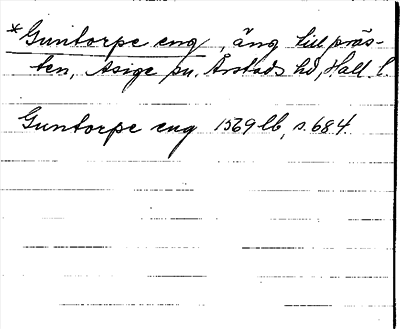 *Guntorpe eng, äng till präs-
ten, Asige sn, Årstads hd, Hall. l.
Guntorpe eng 1569 lb, s. 684.